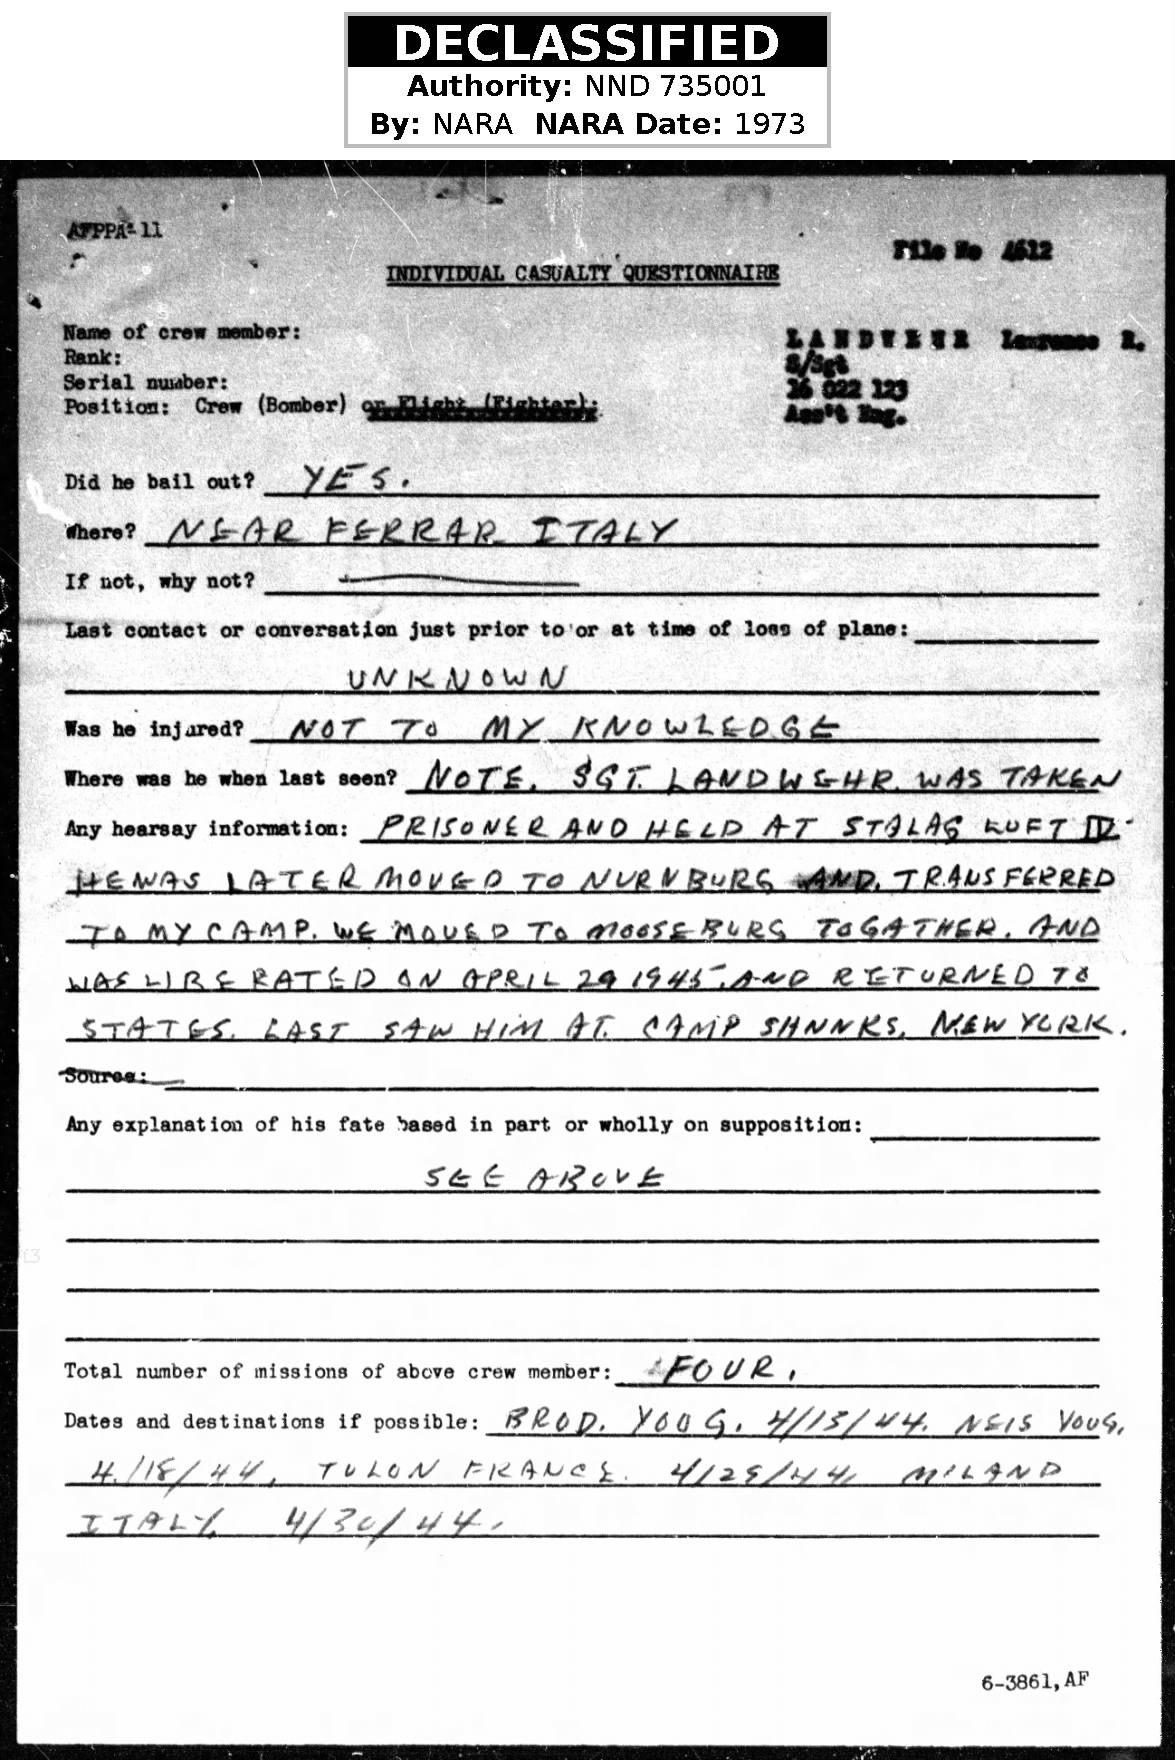 DECLASSIFIED
Authority: NND 735001
By: NARA NARA Date: 1973
AFPPA-11
File No 4612
INDIVIDUAL CASUALTY QUESTIONNAIRE
Name of crew member: LANDWEHR Lawrence R.
Rank: S/Sgt
Serial number: 36 022 123
Position: Crew (Bomber) or Flight (Fighter): Ass't Eng.
Did he bail out? YES.
Where? NEAR FERRAR ITALY
If not, why not?
Last contact or conversation just prior to or at time of loss of plane:
UNKNOWN
Was he injured? NOT TO MY KNOWLEDGE
Where was he when last seen? NOTE. SGT. LANDWEHR. WAS TAKEN
Any hearsay information: PRISONER AND HELD AT STALAG LUFT IV
HE WAS LATER MOVED TO NURNBURG AND. TRANSFERRED
TO MY CAMP. WE MOVED TO MOOSEBURG TOGATHER. AND
WAS LIBERATED ON APRIL 29 1945. AND RETURNED TO
STATES. LAST SAW HIM AT. CAMP SHNNKS. NEW YORK.
Source:
Any explanation of his fate based in part or wholly on supposition:
SEE ABOVE
Total number of missions of above crew member: FOUR.
Dates and destinations if possible: BROD. YOUG. 4/13/44. NEIS YOUG.
4/18/44, TULON FRANCE. 4/29/44, MILAND
ITALY. 4/30/44.
6-3861, AF